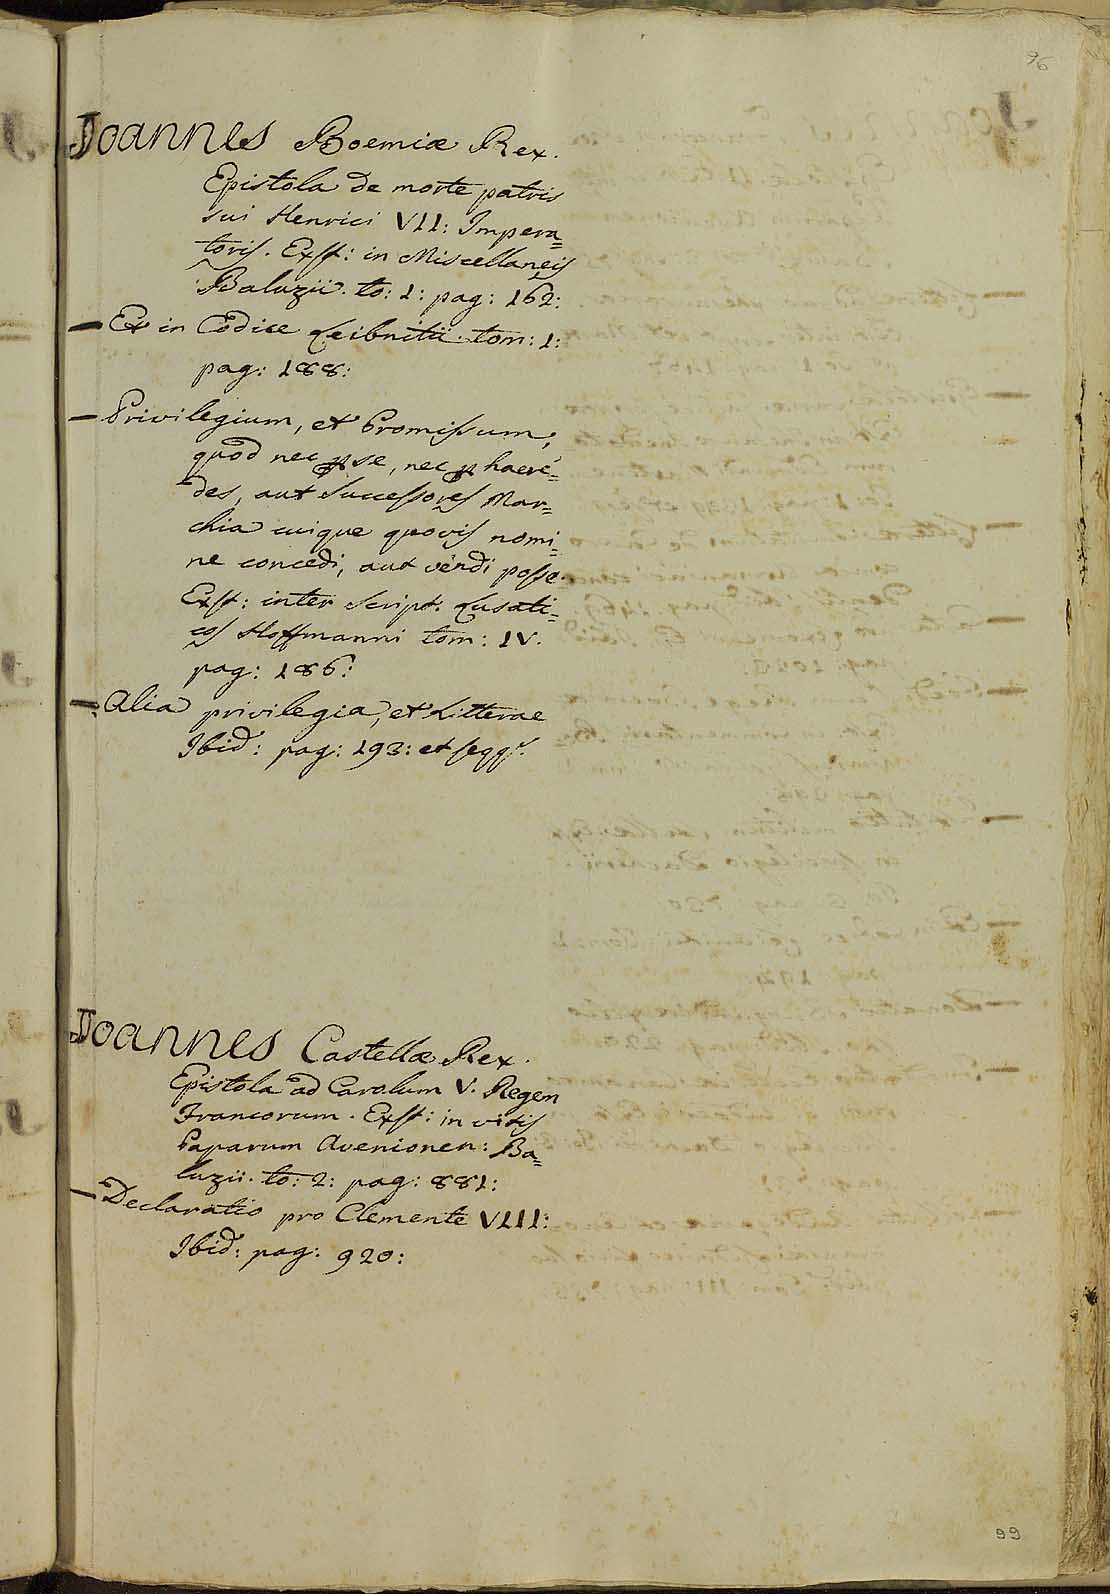 96
Joannes Boemiæ Rex.
Epistola de morte patris
sui Henrici VII: Impera=
toris. Exst: in Miscellaneis
Baluzii. to: 1: pag: 162:
— Et in Codice Leibnitii. tom: 1:
pag: 188:
— Privilegium, et Promissum,
quod nec per se, nec per haere=
des, aut Successores Mar=
chia cuique quovis nomi=
ne concedi, aut vendi posse.
Exst: inter Script: Lusati=
cos Hoffmanni tom: IV.
pag: 186:
— Alia privilegia, et Litterae
Ibid: pag: 193: et seqqs.
Joannes Castellæ Rex.
Epistola ad Carolum V. Regem
Francorum. Exst: in vitis
Paparum Avenionen: Ba=
luzii. to: 2: pag: 881:
— Declaratio pro Clemente VIII:
Ibid: pag: 920:
99